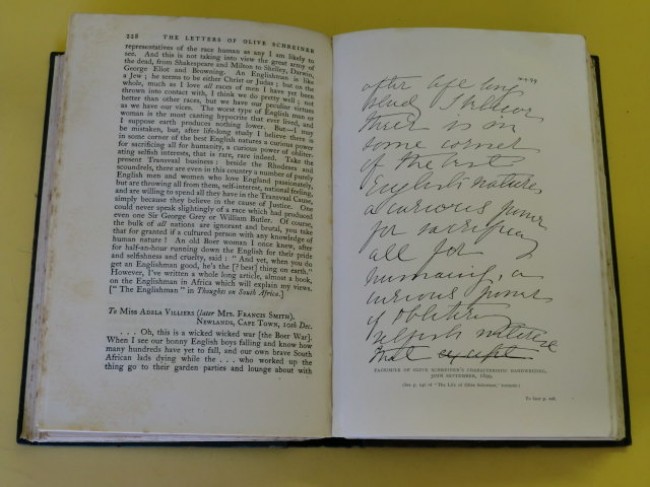 228 THE LETTERS OF OLIVE SCHREINER
representatives of the race human as any I am likely to
see. And this is not taking into view the great army of
the dead, from Shakespeare and Milton to Shelley, Darwin,
George Eliot and Browning. An Englishman is like
a Jew; he seems to be either Christ or Judas; but on the
whole, much as I love all races of men I have yet been
thrown into contact with, I think we do pretty well; not
better than other races, but we have our peculiar virtues
as we have our vices. The worst type of English man or
woman is the most canting hypocrite that ever lived, and
I suppose earth produces nothing lower. But—I may
be mistaken, but, after life-long study I believe there is
in some corner of the best English natures a curious power
for sacrificing all for humanity, a curious power of obliter-
ating selfish interests, that is rare, rare indeed. Take the
present Transvaal business: beside the Rhodeses and
scoundrels, there are even in this country a number of purely
English men and women who love England passionately,
but are throwing all from them, self-interest, national feeling,
and are willing to spend all they have in the Transvaal Cause,
simply because they believe in the cause of Justice. One
could never speak slightingly of a race which had produced
even one Sir George Grey or William Butler. Of course,
the bulk of all nations are ignorant and brutal, you take
that for granted if a cultured person with any knowledge of
human nature! An old Boer woman I once knew, after
for half-an-hour running down the English for their pride
and selfishness and cruelty, said: "And yet, when you do
get an Englishman good, he's the [? best] thing on earth."
However, I've written a whole long article, almost a book,
on the Englishman in Africa which will explain my views.
["The Englishman" in Thoughts on South Africa.]
To Miss Adela Villiers (later Mrs. Francis Smith),
Newlands, Cape Town, 20th Dec.
. . . Oh, this is a wicked wicked war [the Boer War].
When I see our bonny English boys falling and know how
many hundreds have yet to fall, and our own brave South
African lads dying while the . . . who worked up the
thing go to their garden parties and lounge about with
after life long
study I believe
there is in
some corner
of the best
English natures
a curious power
for sacrificing
all for
humanity, a
curious power
of obliter
selfish
that except
FACSIMILE OF OLIVE SCHREINER'S CHARACTERISTIC HANDWRITING,
SEPTEMBER, 1899.
(See p. of "The Life of Olive Schreiner,"
To face p. 228